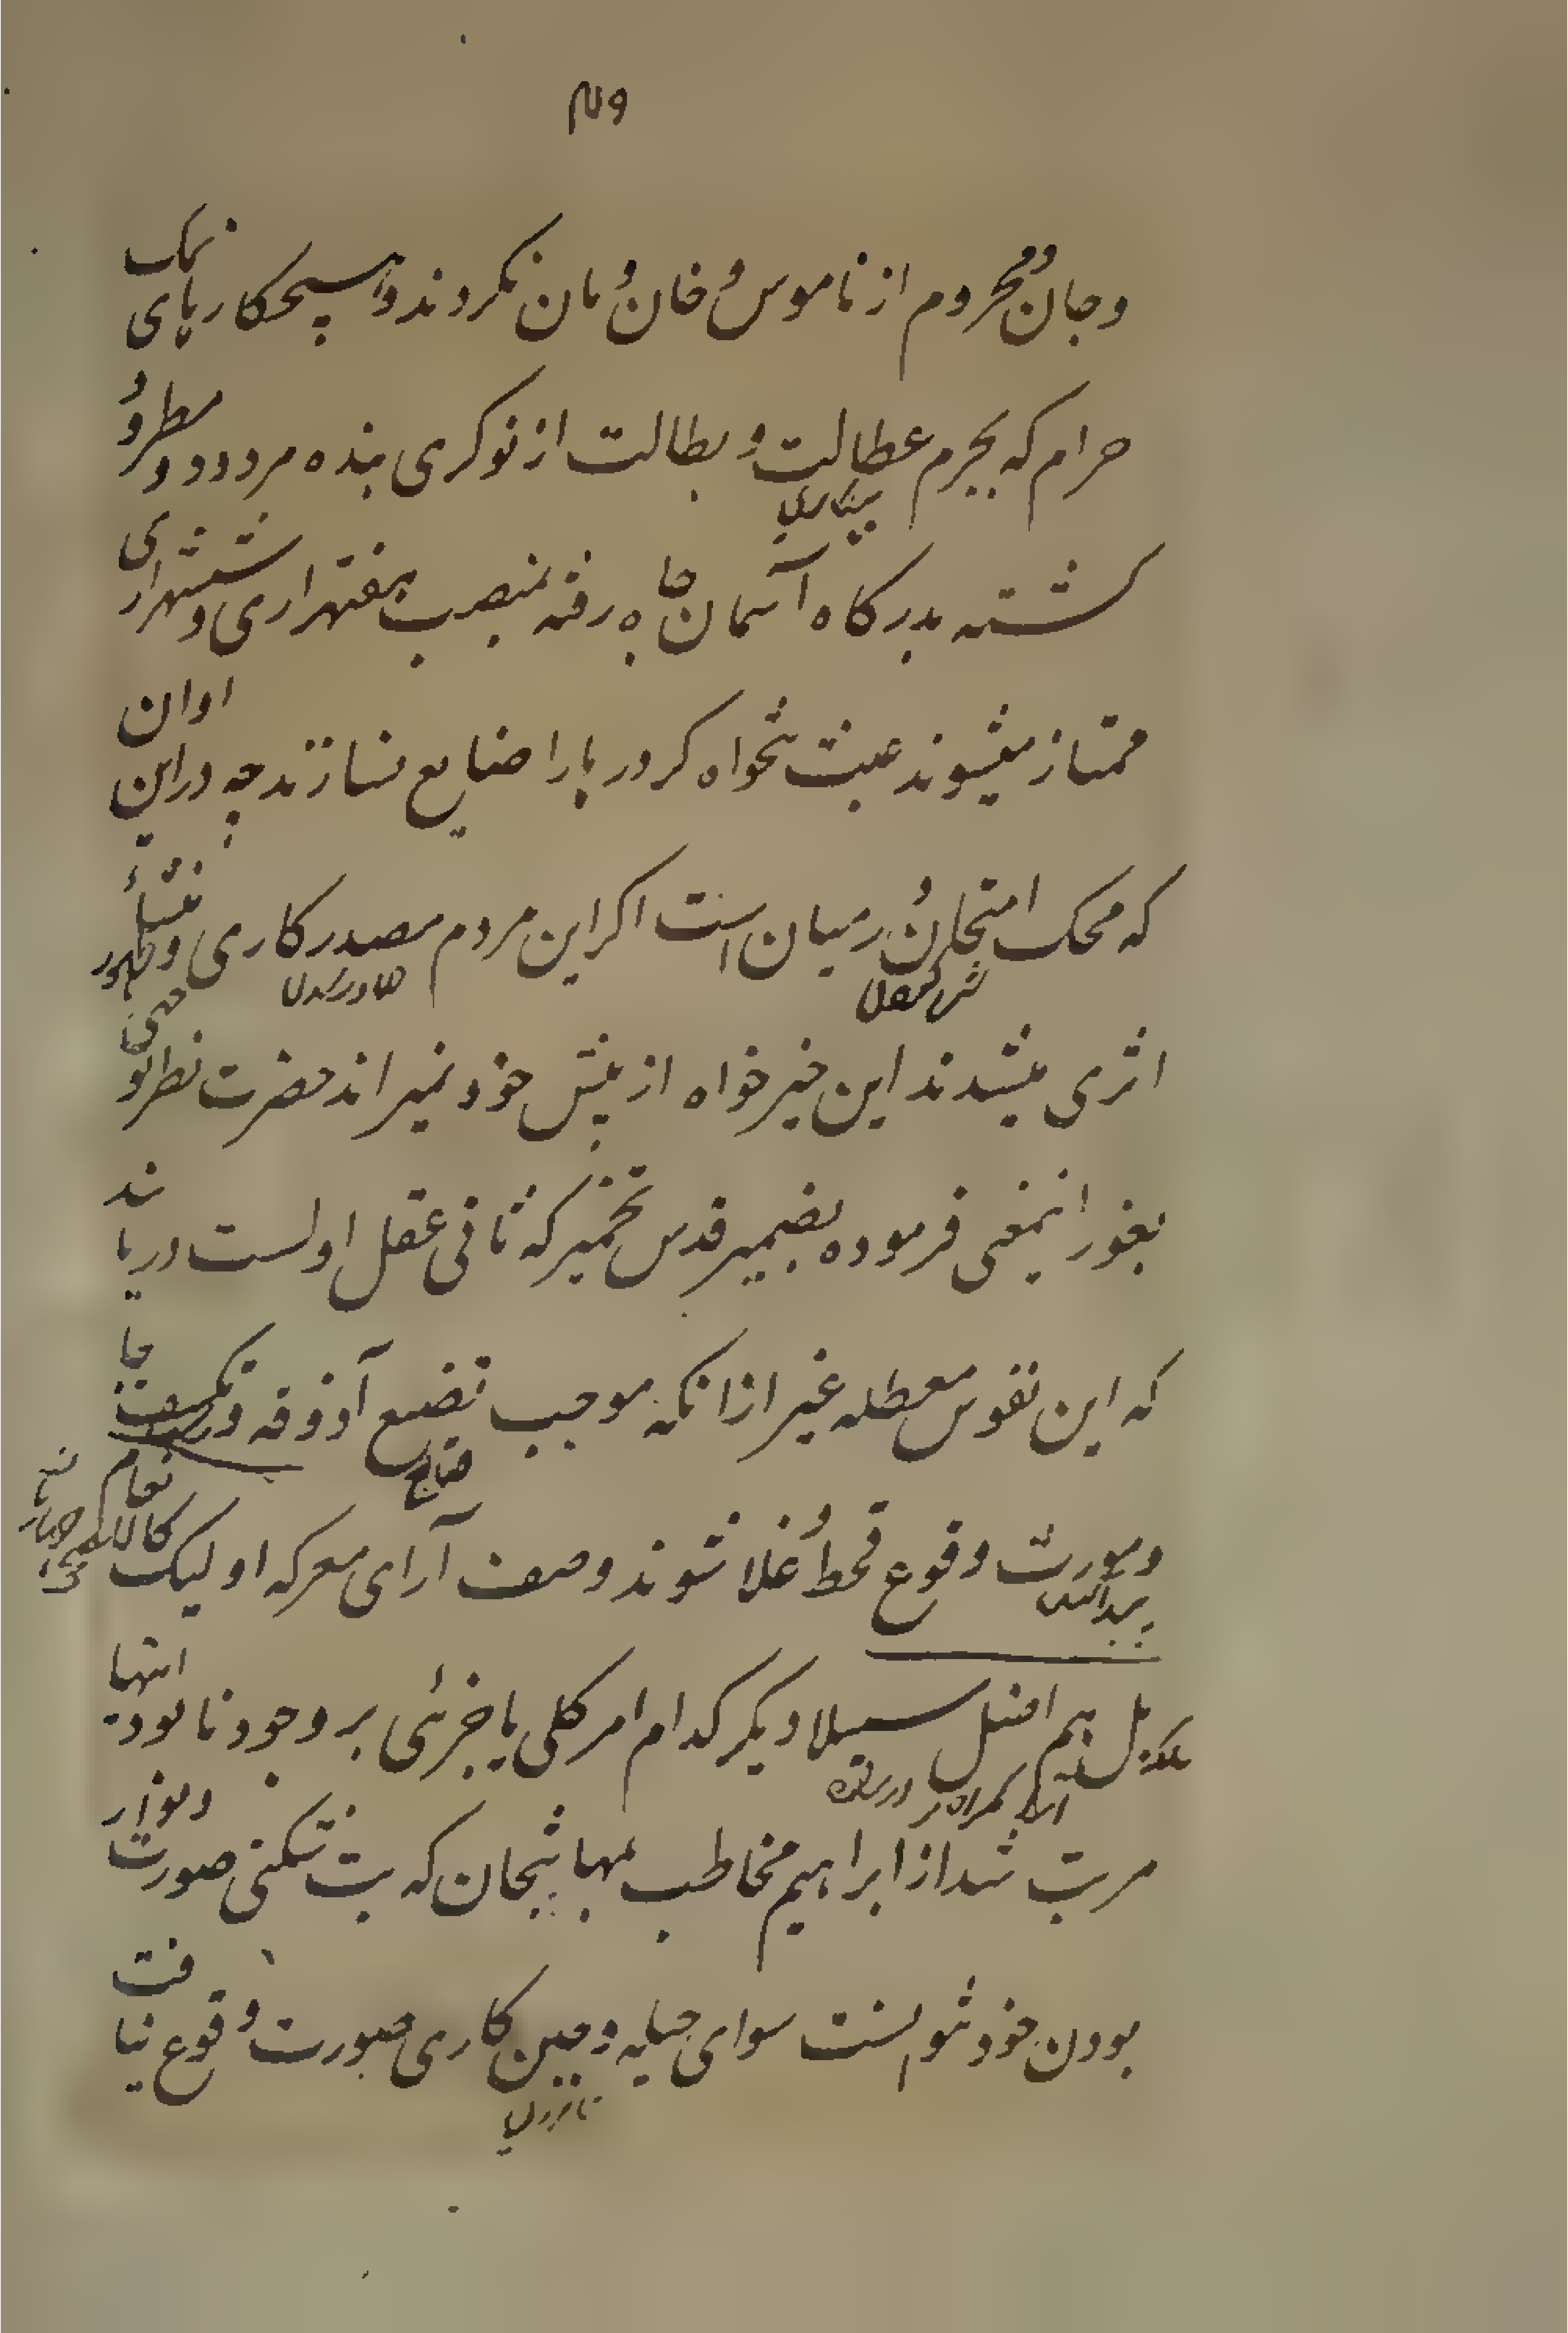 وجان و محروم از ناموس و خان و مان نکردند و ایسیحکارهای نمک
حرام که بجرم عطالت و بطالت از نوکری بنده مردود و مطرود
بیکاری
کشته بدرکاه آسمان جاه رفته بمنصب هفتهزاری و ششهزاری
ممتاز میشوند عبث تنخواه کرورها را ضایع نسازند چه در این اوان
که محک امتحان در میان است اکر این مردم مصدر کاری و منشأ
اثری میشدند این خیرخواه از پیش خود نمیراند حضرت نظر توجهی
بغور اینمعنی فرموده بضمیر قدس تخمیر که ثانی عقل اولست دریابند
که این نفوس معطله غیر از انکه موجب تضیع آذوقه و
ضایع
و مورث وقوع قحط و غلا شوند و صف آرای معرکه اولیک کالانعام
بل هم اضل سبیلا دیکر کدام امر کلی یا جزئی بر وجود نابود اینها
مرتب شد از ابراهیم مخاطب بمهابتخان که بت شکنی صورت
بودن خود توانست سوای حیله و جبن کاری صورت وقوع نیافت